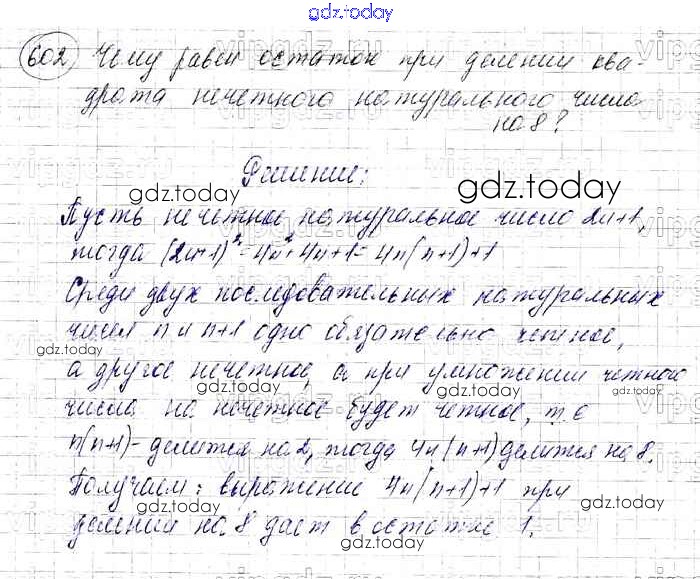 gdz.today
602 Чему равен остаток при делении ква-
драта нечетного натурального числа
на 8?
Решение:
gdz.today
gdz.today
Пусть нечетное натуральное число 2n+1,
тогда (2n+1)² = 4n² + 4n + 1 = 4n(n+1)+1
Среди двух последовательных натуральных
чисел n и n+1 одно обязательно четное,
gdz.today
а другое нечетное, а при умножении четного
gdz.today
gdz.today
числа на нечетное будет четное, т.е
n(n+1)- делится на 2, тогда 4n(n+1) делится на 8.
Получаем: выражение 4n(n+1)+1 при
gdz.today
gdz.today
делении на 8 дает в остатке 1.
gdz.today